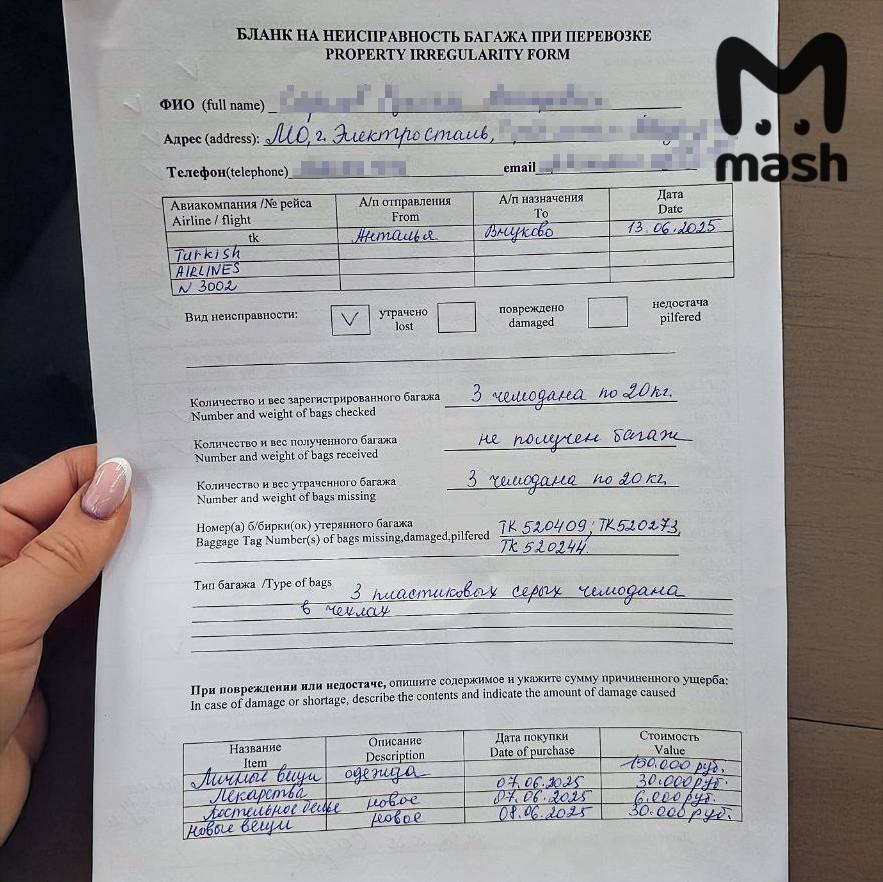 БЛАНК НА НЕИСПРАВНОСТЬ БАГАЖА ПРИ ПЕРЕВОЗКЕ
PROPERTY IRREGULARITY FORM
mash
ФИО (full name)
Адрес (address): МО, г. Электросталь,
Телефон(telephone) email
Авиакомпания /№ рейса А/п отправления А/п назначения Дата
Airline / flight From To Date
tk Анталья Внуково 13.06.2025
Turkish
AIRLINES
N 3002
Вид неисправности: V утрачено повреждено недостача
lost damaged pilfered
Количество и вес зарегистрированного багажа 3 чемодана по 20кг.
Number and weight of bags checked
Количество и вес полученного багажа не получен багаж
Number and weight of bags received
Количество и вес утраченного багажа 3 чемодана по 20 кг.
Number and weight of bags missing
Номер(а) б/бирки(ок) утерянного багажа TK 520409; TK520273,
Baggage Tag Number(s) of bags missing,damaged,pilfered TK 520244.
Тип багажа /Type of bags 3 пластиковых серых чемодана
в чехлах
При повреждении или недостаче, опишите содержимое и укажите сумму причиненного ущерба:
In case of damage or shortage, describe the contents and indicate the amount of damage caused
Название Описание Дата покупки Стоимость
Item Description Date of purchase Value
Личные вещи одежда 150.000 руб.
Лекарства 07.06.2025 30.000 руб.
Постельное белье новое 07.06.2025 6.000 руб.
новые вещи новое 08.06.2025 30.000 руб.